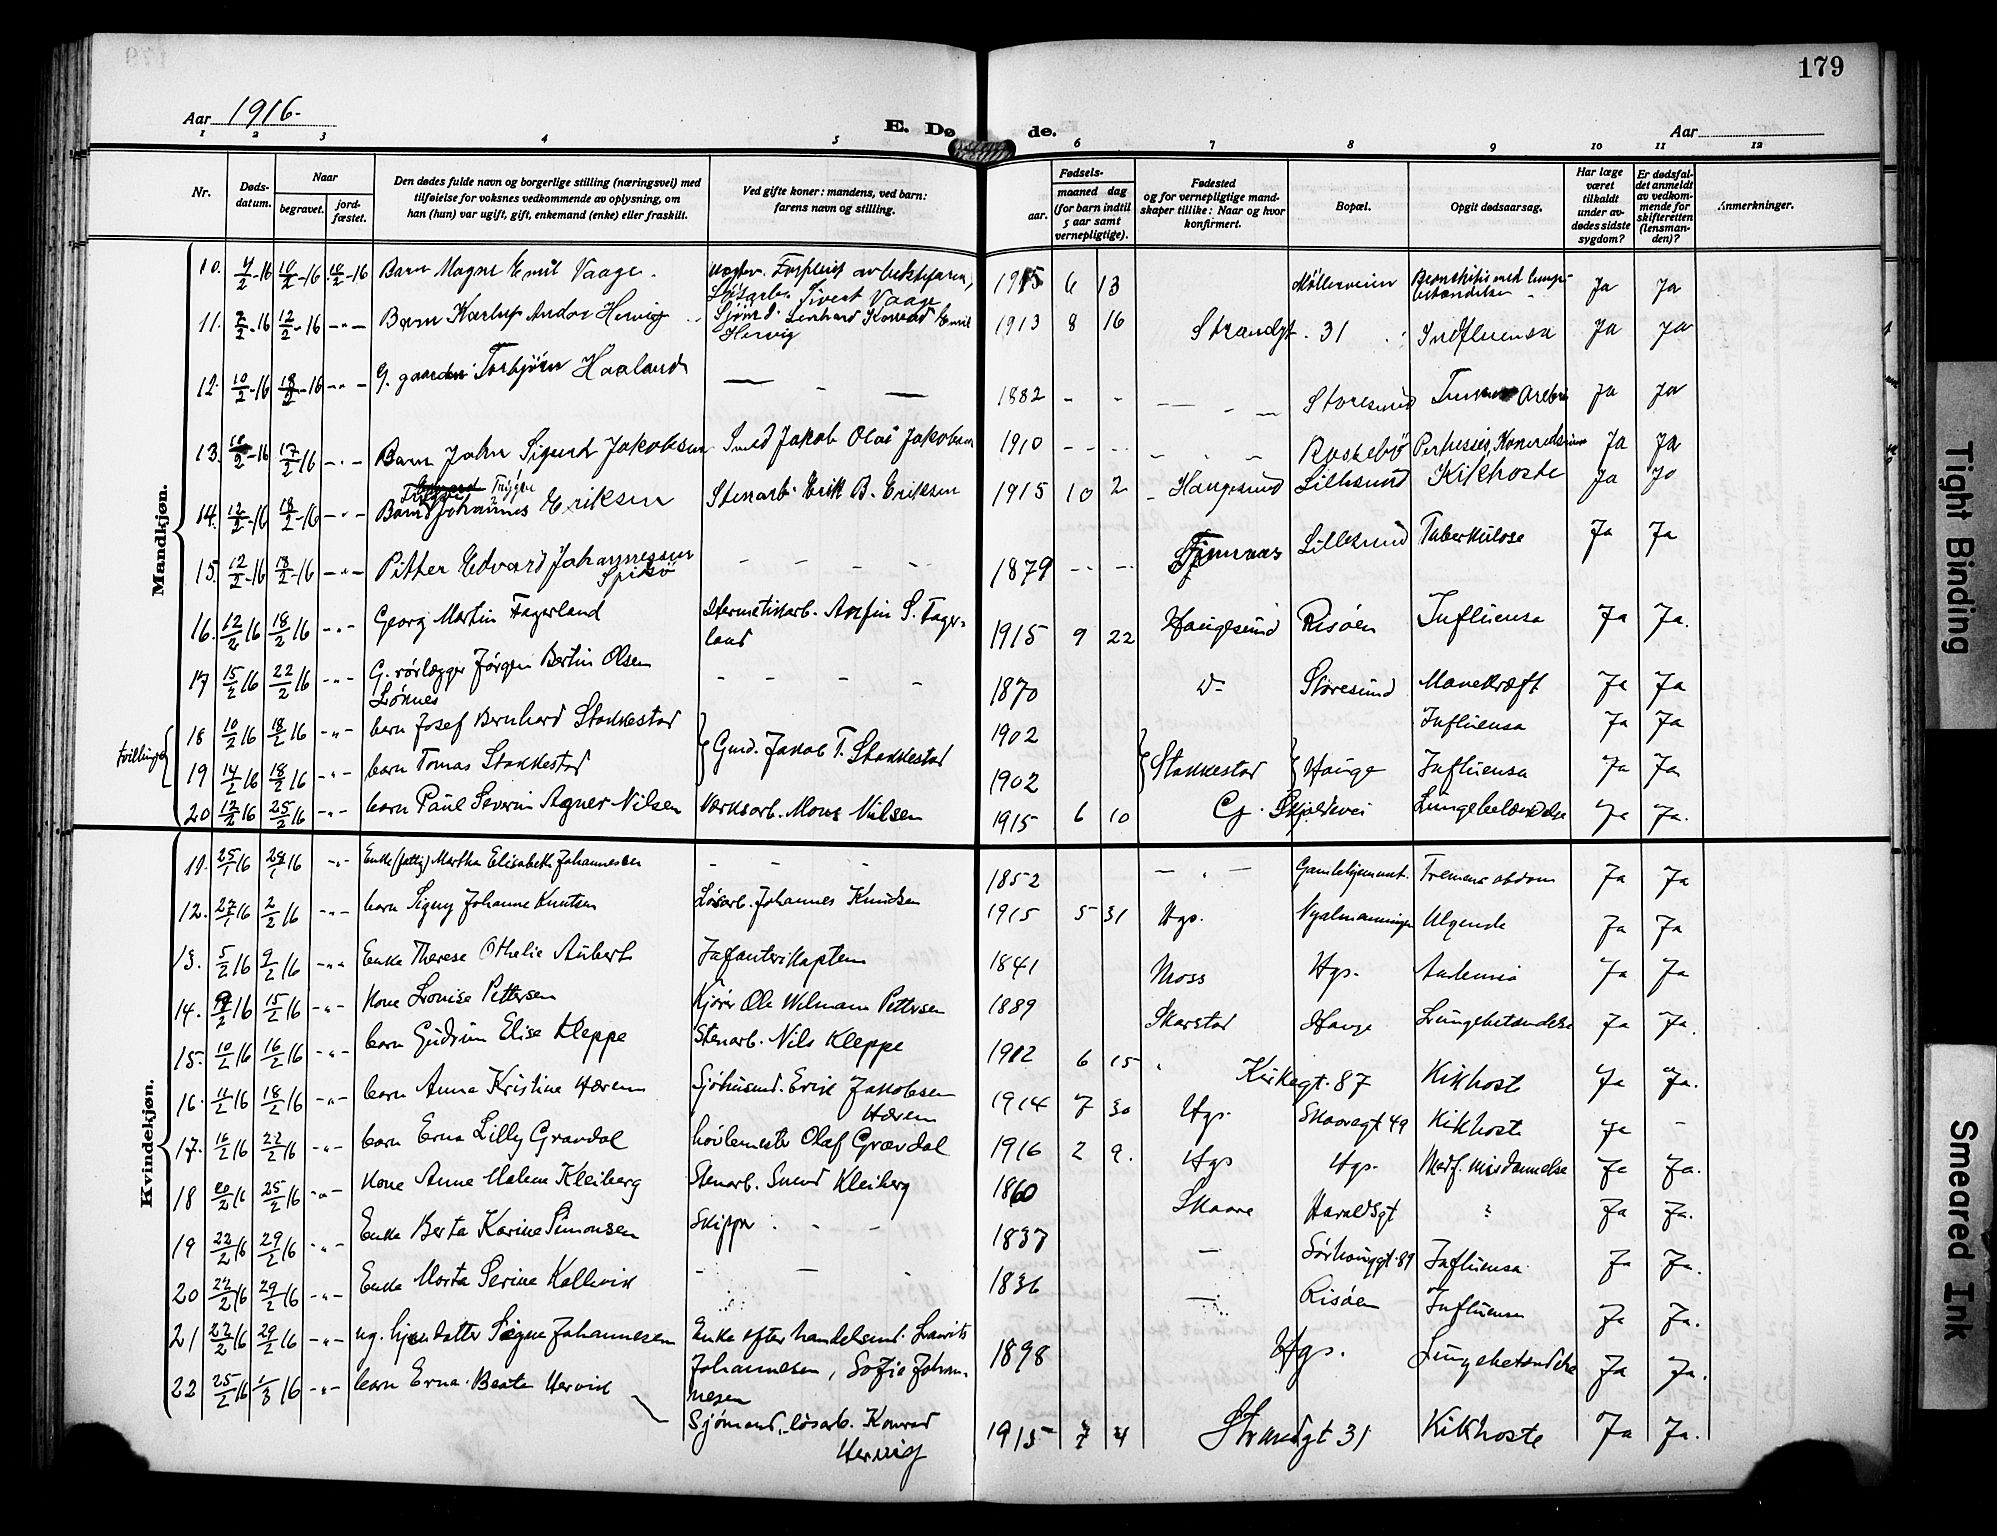 179
Aar 1916.
E. Dø de.
Aar
1 2 3 4 5 6 7 8 9 10 11 12
Nr.
Dødsdatum.
Naar
begravet.
jordfæstet.
Den dødes fulde navn og borgerlige stilling (næringsvei) med
tilføielse for voksnes vedkommende av oplysning, om
han (hun) var ugift, gift, enkemand (enke) eller fraskilt.
Ved gifte koner: mandens, ved barn:
farens navn og stilling.
Fødsels-
aar.
maaned dag
(for barn indtil
5 aar samt
vernepligtige).
Fødested
og for vernepligtige mand-
skaper tillike: Naar og hvor
konfirmert.
Bopæl.
Opgit dødsaarsag.
Har læge
været
tilkaldt
under av-
dødes sidste
sygdom?
Er dødsfal-
det anmeldt
av vedkom-
mende for
skifteretten
(lensman-
den)?
Anmerkninger.
Mandkjøn.
10. Barn Magne Emil Vaage. Løsarb. Sivert Vaage 1915 6 13 Møllerveien Ja Ja
11. 12/2-16 -"- Barn Andor Hervig Sjømd. Konrad Emil Hervig 1913 8 16 Strandgt. 31 Influensa Ja Ja
12. 10/2-16 18/2-16 -"- G. Torbjørn Haaland 1882 Storesund Ja Ja
13. 17/2-16 -"- Barn John Sigurd Jakobsen Smed Jakob Olai Jakobsen 1910 Ja Ja
14. 12/2-16 18/2-16 -"- Barn Johannes Eriksen Stenarb. Erik B. Eriksen 1915 10 2 Haugesund Lillesund Kikhoste Ja Ja
15. 12/2-16 18/2-16 -"- Pitter Edvard Johannessen 1879 Lillesund Tuberkulose Ja Ja
16. 12/2 16 18/2 16 -"- Georg Martin Fagerland Hermetikarb. Arefin S. Fager-
land 1915 9 22 Haugesund Risøen Influensa Ja Ja.
17 15/2 16 22/2 16 -"- G. rørlægger Jørgen Bertin Olsen
Lønnes 1870 Storesund Mavekræft Ja Ja
tvillinger
18 10/2 16 18/2 16 -"- barn Josef Bernhard Stakkestad 1902 Influensa Ja Ja
Gmd. Jakob T. Stakkestad Stakkestad Hauge
19 14/2 16 18/2 16 -"- barn Tomas Stakkestad 1902 Influensa Ja Ja
20 25/2 16 -"- barn Paul Severin Agner Nilsen Verksarb. Mons Nilsen 1915 6 10 Skjoldvei Lungebetændelse Ja Ja.
Kvindekjøn.
11. 25/1 16 29/1 16 -"- Enke (fattig) Martha Elisabeth Johannessen 1852 Gamlehjemmet. Ja Ja
12. 27/1 16 2/2 16 -"- barn Signy Johanne Knutsen Løsarb. Johannes Knudsen 1915 5 31 Hgs. Ja Ja
13. 5/2 16 9/2 16 -"- Enke Therese Othelie Aubert Infanterikaptein 1841 Moss Hgs. Ja Ja
14. 15/2 16 -"- Kone Lovise Pettersen Kjører Ole Pettersen 1889 Skarstad Hauge Lungebetændelse Ja Ja.
15. 10/2 16 16/2 16 -"- barn Gudrun Elise Kleppe Stenarb. Nils Kleppe 1912 6 15 Kirkegt. 87 Kikhoste Ja Ja.
16. 11/2 16 18/2 16 -"- barn Anna Kristine Hærem Erik Jakobsen
Hærem 1914 7 30 Hgs. Skaaregt 49 Kikhoste Ja -
17. 16/2 16 22/2 16 -"- barn Erna Lilly Gravdal høvlemester Olaf Gravdal 1916 2 9. Hgs Hgs. Medf. misdannelse Ja Ja.
18 20/2 16 25/2 16 -"- Kone Anne Malene Kleiberg Stenarb. Kleiberg 1860 Skaare Haraldsgt Ja Ja.
19 22/2 16 29/2 16 -"- Enke Berta Karine Simonsen Skipper 1837 Sørhauggt. 89 Influensa Ja Ja.
20 22/2 16 29/2 16 -"- Enke Marta Serine Kallevik 1836 Risøen Influensa Ja Ja.
21 29/2 16 -"- ug. Signe Johannesen Enke efter handelsmd. Lauvits
Johannesen, Sofie Johan-
nesen 1898 Hgs. Lungebetændelse Ja Ja.
22 25/2 16 1/3 16 -"- barn Erna Beate Hervik Sjømand, løsarb. Konrad
Hervig 1915 4 Strandgt 31 Kikhoste Ja Ja.
Tight Binding
Smeared Ink